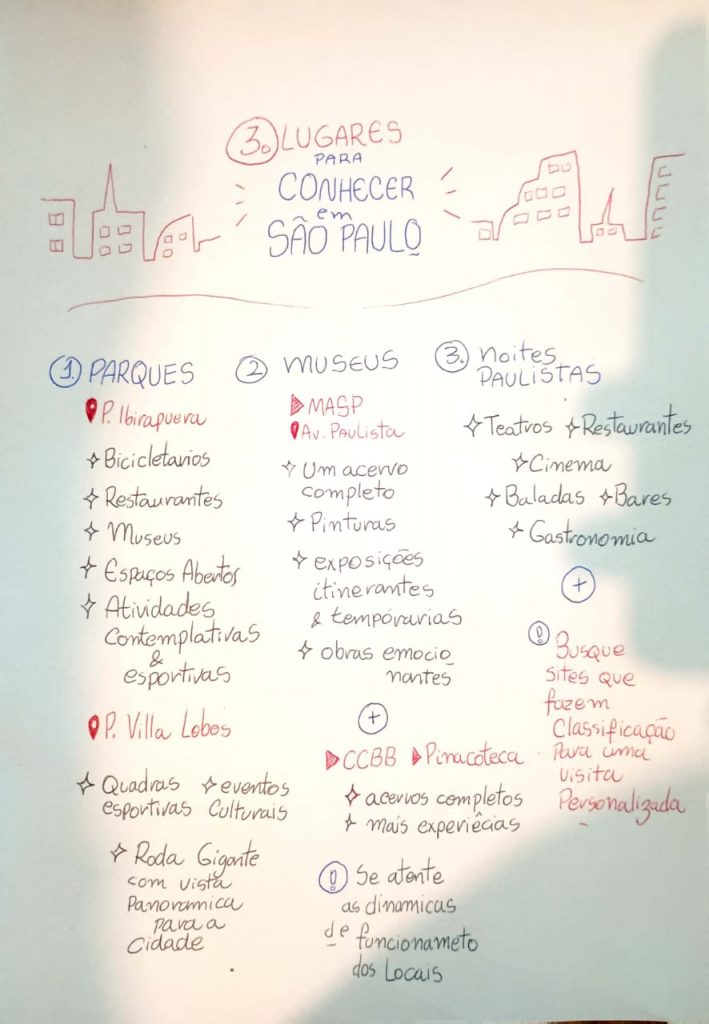 3. LUGARES
PARA
CONHECER
em
SÃO PAULO
1. PARQUES
P. Ibirapuera
Bicicletarios
Restaurantes
Museus
Espaços Abertos
Atividades
Contemplativas
&
esportivas
P. Villa Lobos
Quadras
esportivas
eventos
Culturais
Roda Gigante
com vista
Panoramica
para a
Cidade
2 MUSEUS
MASP
Av. Paulista
Um acervo
completo
Pinturas
exposições
itinerantes
& temporarias
obras emocio
nantes
+
CCBB Pinacoteca
acervos completos
mais experiêcias
! Se atente
as dinamicas
de funcionameto
dos Locais
3. Noites
PAULISTAS
Teatros Restaurantes
Cinema
Baladas Bares
Gastronomia
+
! Busque
sites que
fazem
Classificação
Para uma
visita
Personalizada